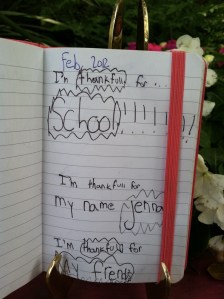 Feb, 2012
I'm thankfull for...
School!!!!!!!
I'm thankfull for
my name Jenna
I'm thankfull for
My friends